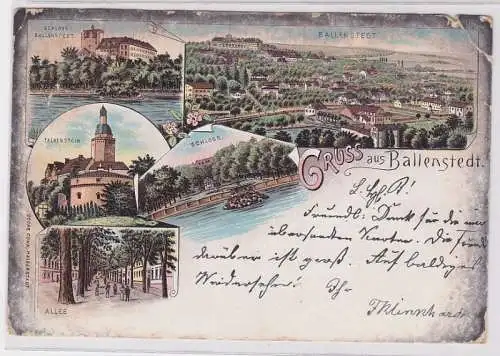 SCHLOSS
BALLENSTEDT.
BALLENSTEDT
FALKENSTEIN
SCHLOSS
GRUSS aus Ballenstedt.
ALLEE
Freundl. Dank für die mir
übersandten Karten. Die Freude
darüber ist groß. Auf baldiges
Wiedersehen! Ihr